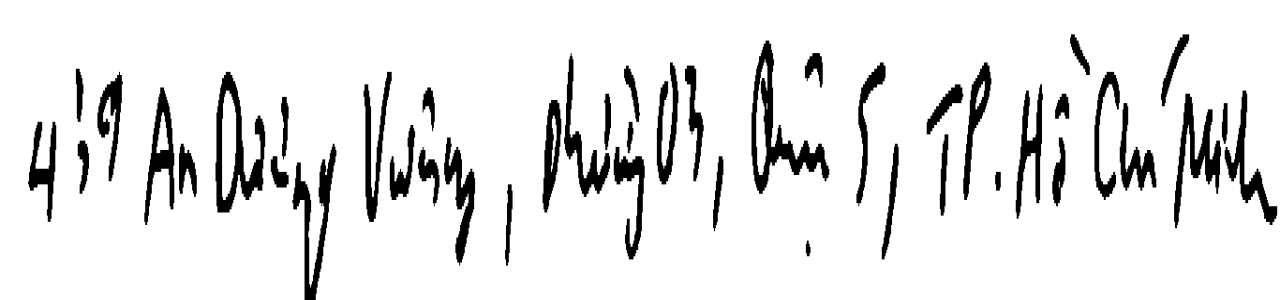 4i9 An Dương Vương, Phường 03, Quận 5, TP. Hồ Chí Minh